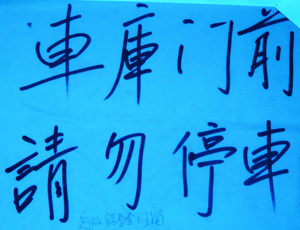 車庫门前
請勿停車